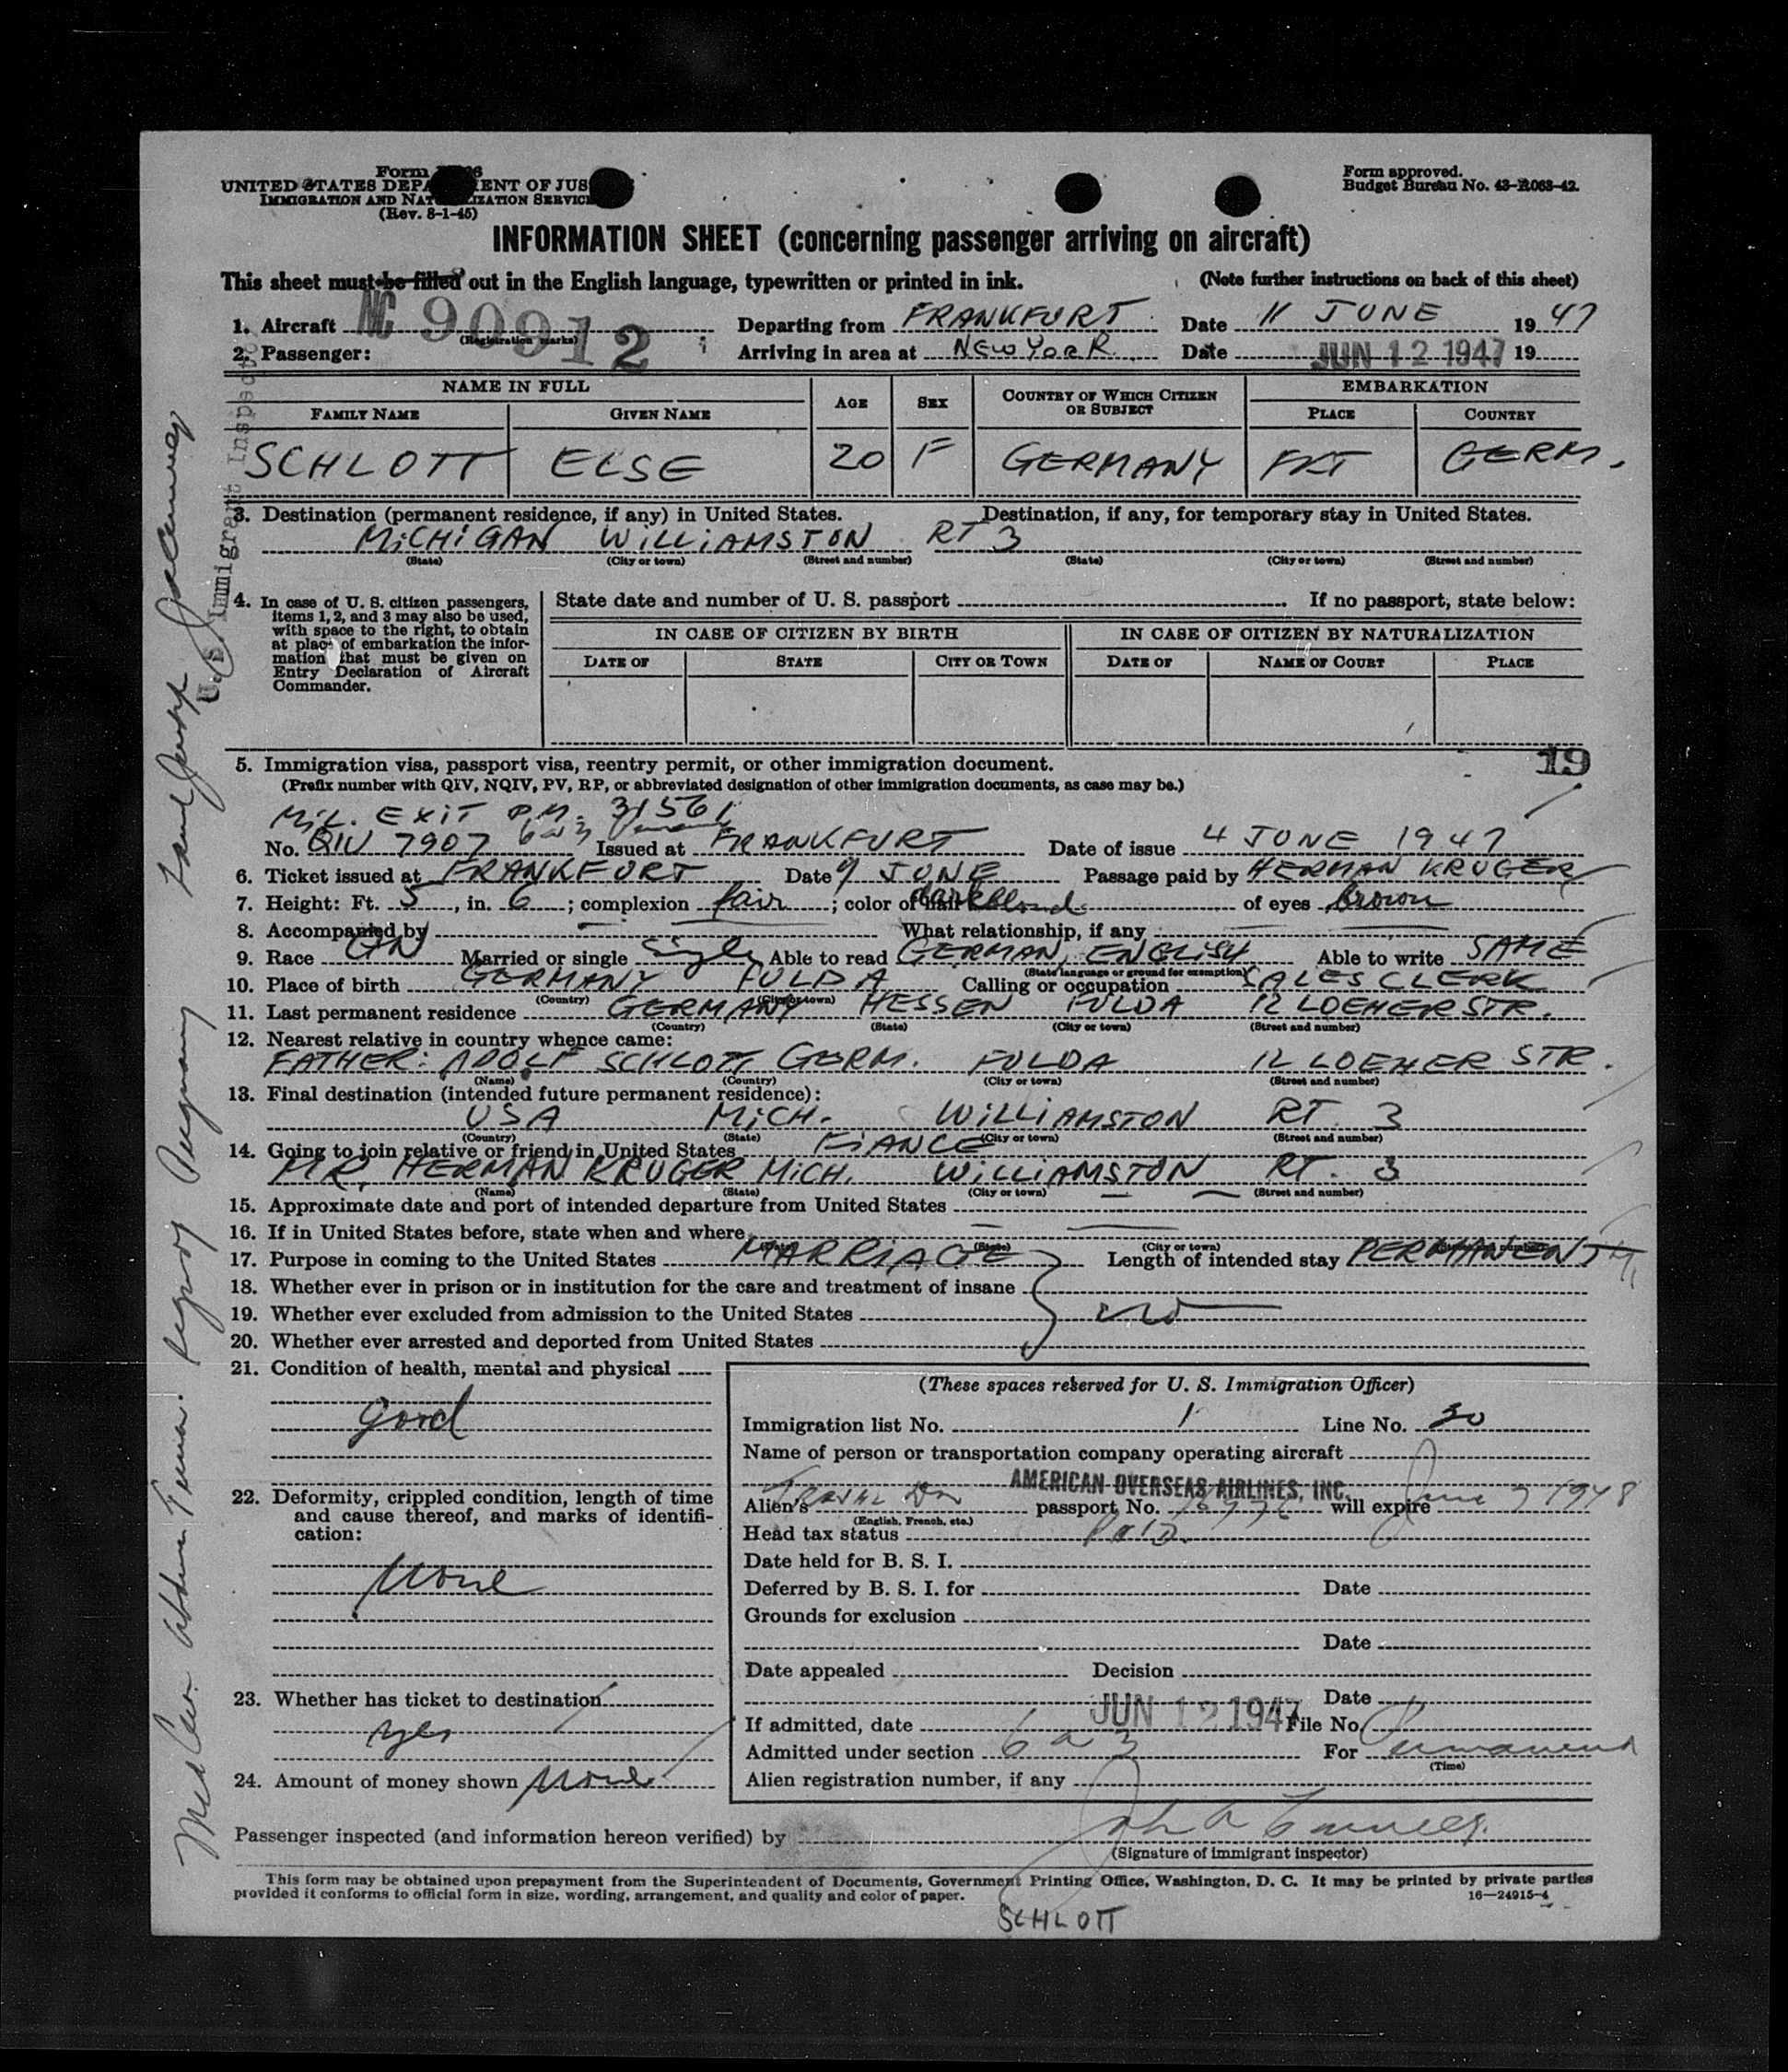 Form
UNITED STATES DEPARTMENT OF JUS
IMMIGRATION AND NATURALIZATION SERVICE
(Rev. 8-1-45)
Form approved.
Budget Bureau No. 43-R063-42.
INFORMATION SHEET (concerning passenger arriving on aircraft)
This sheet must be filled out in the English language, typewritten or printed in ink. (Note further instructions on back of this sheet)
1. Aircraft NC 90912 Departing from FRANKFURT Date 11 JUNE 1947
(Registration marks)
2. Passenger: Arriving in area at NEW YORK Date JUN 12 1947 19
NAME IN FULL AGE SEX COUNTRY OF WHICH CITIZEN OR SUBJECT EMBARKATION
FAMILY NAME GIVEN NAME PLACE COUNTRY
SCHLOTT ELSE 20 F GERMANY FKT GERM.
3. Destination (permanent residence, if any) in United States. Destination, if any, for temporary stay in United States.
MICHIGAN WILLIAMSTON RT 3
(State) (City or town) (Street and number) (State) (City or town) (Street and number)
4. In case of U. S. citizen passengers,
items 1, 2, and 3 may also be used,
with space to the right, to obtain
at place of embarkation the infor-
mation that must be given on
Entry Declaration of Aircraft
Commander.
State date and number of U. S. passport If no passport, state below:
IN CASE OF CITIZEN BY BIRTH IN CASE OF CITIZEN BY NATURALIZATION
DATE OF STATE CITY OR TOWN DATE OF NAME OF COURT PLACE
19
5. Immigration visa, passport visa, reentry permit, or other immigration document.
(Prefix number with QIV, NQIV, PV, RP, or abbreviated designation of other immigration documents, as case may be.)
MIL. EXIT P.M. 31561
No. QIV 7907 6 a 3 Issued at FRANKFURT Date of issue 4 JUNE 1947
6. Ticket issued at FRANKFURT Date 9 JUNE Passage paid by HERMAN KRUGER
7. Height: Ft. 5, in. 6; complexion fair; color of hair darkblond of eyes brown
8. Accompanied by What relationship, if any
9. Race GN Married or single Single Able to read GERMAN, ENGLISH Able to write SAME
(State language or ground for exemption)
10. Place of birth GERMANY FULDA Calling or occupation SALES CLERK
(Country) (City or town)
11. Last permanent residence GERMANY HESSEN FULDA 12 LOEHERSTR.
(Country) (State) (City or town) (Street and number)
12. Nearest relative in country whence came:
FATHER: ADOLF SCHLOTT GERM. FULDA 12 LOEHER STR.
(Name) (Country) (City or town) (Street and number)
13. Final destination (intended future permanent residence):
USA MICH. WILLIAMSTON RT. 3
(Country) (State) (City or town) (Street and number)
14. Going to join relative or friend in United States FIANCE
MR. HERMAN KRUGER MICH. WILLIAMSTON RT. 3
(Name) (State) (City or town) (Street and number)
15. Approximate date and port of intended departure from United States
16. If in United States before, state when and where
(State) (City or town)
17. Purpose in coming to the United States MARRIAGE Length of intended stay PERMANENT
18. Whether ever in prison or in institution for the care and treatment of insane
19. Whether ever excluded from admission to the United States no
20. Whether ever arrested and deported from United States
21. Condition of health, mental and physical
good
22. Deformity, crippled condition, length of time
and cause thereof, and marks of identifi-
cation:
None
23. Whether has ticket to destination
yes
24. Amount of money shown None
(These spaces reserved for U. S. Immigration Officer)
Immigration list No. 1 Line No. 30
Name of person or transportation company operating aircraft
AMERICAN OVERSEAS AIRLINES, INC.
Alien's passport No. will expire June 7 1948
(English, French, etc.)
Head tax status Paid
Date held for B. S. I.
Deferred by B. S. I. for Date
Grounds for exclusion
Date
Date appealed Decision
Date
If admitted, date JUN 12 1947 File No.
Admitted under section 6 a 3 For Permanent
(Time)
Alien registration number, if any
Passenger inspected (and information hereon verified) by
(Signature of immigrant inspector)
This form may be obtained upon prepayment from the Superintendent of Documents, Government Printing Office, Washington, D. C. It may be printed by private parties
provided it conforms to official form in size, wording, arrangement, and quality and color of paper. 16—24915-4
SCHLOTT
U. S. Immigrant Inspector